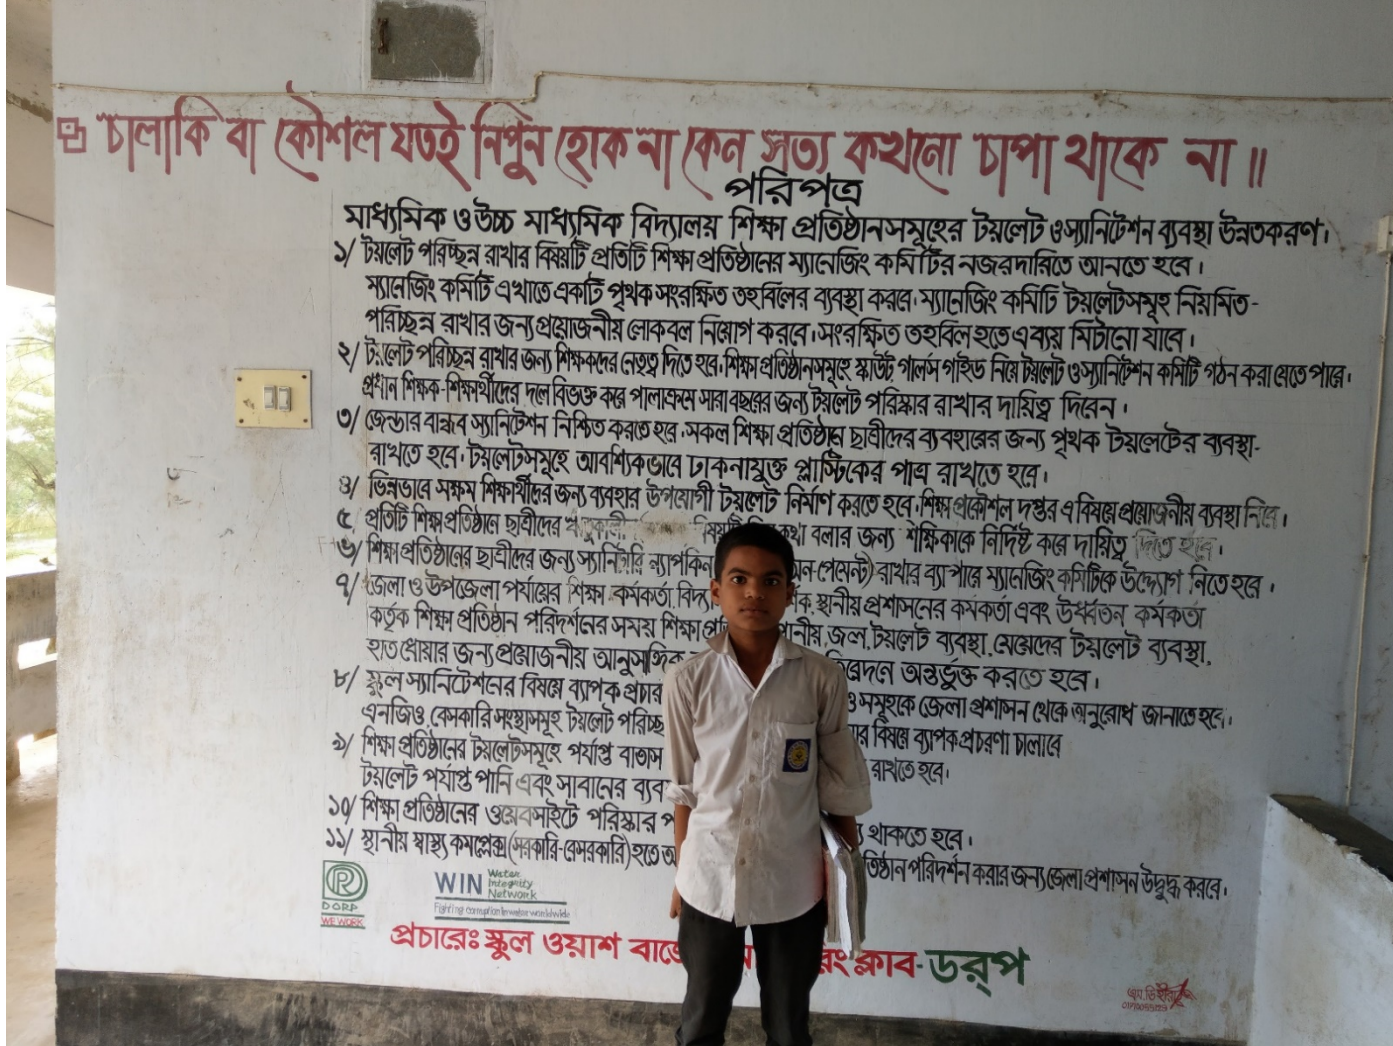 চালাকি বা কৌশল যতই নিপুন হোক না কেন সত্য কখনো চাপা থাকে না ॥
পরিপত্র
মাধ্যমিক ও উচ্চ মাধ্যমিক বিদ্যালয় শিক্ষা প্রতিষ্ঠানসমূহের টয়লেট ও স্যানিটেশন ব্যবস্থা উন্নতকরণ।
১/ টয়লেট পরিচ্ছন্ন রাখার বিষয়টি প্রতিটি শিক্ষা প্রতিষ্ঠানের ম্যানেজিং কমিটির নজরদারিতে আনতে হবে।
ম্যানেজিং কমিটি এখাতে একটি পৃথক সংরক্ষিত তহবিলের ব্যবস্থা করবে। ম্যানেজিং কমিটি টয়লেটসমূহ নিয়মিত-
পরিচ্ছন্ন রাখার জন্য প্রয়োজনীয় লোকবল নিয়োগ করবে। সংরক্ষিত তহবিল হতে এ ব্যয় মিটানো যাবে।
২/ টয়লেট পরিচ্ছন্ন রাখার জন্য শিক্ষকদের নেতৃত্ব দিতে হবে। শিক্ষা প্রতিষ্ঠানসমূহে স্কাউট, গার্লস গাইড নিয়ে টয়লেট ও স্যানিটেশন কমিটি গঠন করা যেতে পারে।
প্রধান শিক্ষক-শিক্ষার্থীদের দলে বিভক্ত করে পালাক্রমে সারা বছরের জন্য টয়লেট পরিস্কার রাখার দায়িত্ব দিবেন।
৩/ জেন্ডার বান্ধব স্যানিটেশন নিশ্চিত করতে হবে। সকল শিক্ষা প্রতিষ্ঠান ছাত্রীদের ব্যবহারের জন্য পৃথক টয়লেটের ব্যবস্থা-
রাখতে হবে। টয়লেটসমূহে আবশ্যিকভাবে ঢাকনাযুক্ত প্লাস্টিকের পাত্র রাখতে হবে।
৪/ ভিন্নভাবে সক্ষম শিক্ষার্থীদের জন্য ব্যবহার উপযোগী টয়লেট নির্মাণ করতে হবে। শিক্ষা প্রকৌশল দপ্তর এ বিষয়ে প্রয়োজনীয় ব্যবস্থা নিবে।
৫ প্রতিটি শিক্ষা প্রতিষ্ঠানে ছাত্রীদের কথা বলার জন্য শিক্ষিকাকে নির্দিষ্ট করে দায়িত্ব দিতে হবে।
৬/ শিক্ষা প্রতিষ্ঠানের ছাত্রীদের জন্য স্যানিটারি ন্যাপকিন অন-পেমেন্ট) রাখার ব্যাপারে ম্যানেজিং কমিটিকে উদ্দ্যেগ নিতে হবে।
৭/ জেলা ও উপজেলা পর্যায়ের শিক্ষা কর্মকর্তা, স্থানীয় প্রশাসনের কর্মকর্তা এবং উর্ধ্বতন কর্মকর্তা
কর্তৃক শিক্ষা প্রতিষ্ঠান পরিদর্শনের সময় শিক্ষা জল, টয়লেট ব্যবস্থা, মেয়েদের টয়লেট ব্যবস্থা,
হাত ধোয়ার জন্য প্রয়োজনীয় আনুসাঙ্গিক অন্তর্ভুক্ত করতে হবে।
৮/ স্কুল স্যানিটেশনের বিষয়ে ব্যাপক প্রচার সমূহকে জেলা প্রশাসন থেকে অনুরোধ জানাতে হবে,
এনজিও, বেসকারি সংস্থাসমূহ টয়লেট বিষয়ে ব্যাপক প্রচরণা চালাবে
৯/ শিক্ষা প্রতিষ্ঠানের টয়লেটসমূহে পর্যাপ্ত বাতাস রাখতে হবে।
টয়লেট পর্যাপ্ত পানি এবং সাবানের
১০/ শিক্ষা প্রতিষ্ঠানের ওয়েবসাইটে পরিস্কার থাকতে হবে।
১১/ স্থানীয় স্বাস্থ্য কমপ্লেক্স (সরকারি-বেসরকারি) হতে পরিদর্শন করার জন্য জেলা প্রশাসন উদ্বুদ্ধ করবে।
DORP
WE WORK
WIN Water Integrity Network
Fighting corruption in water worldwide
প্রচারেঃ স্কুল ওয়াশ ক্লাব- ডর্‌প